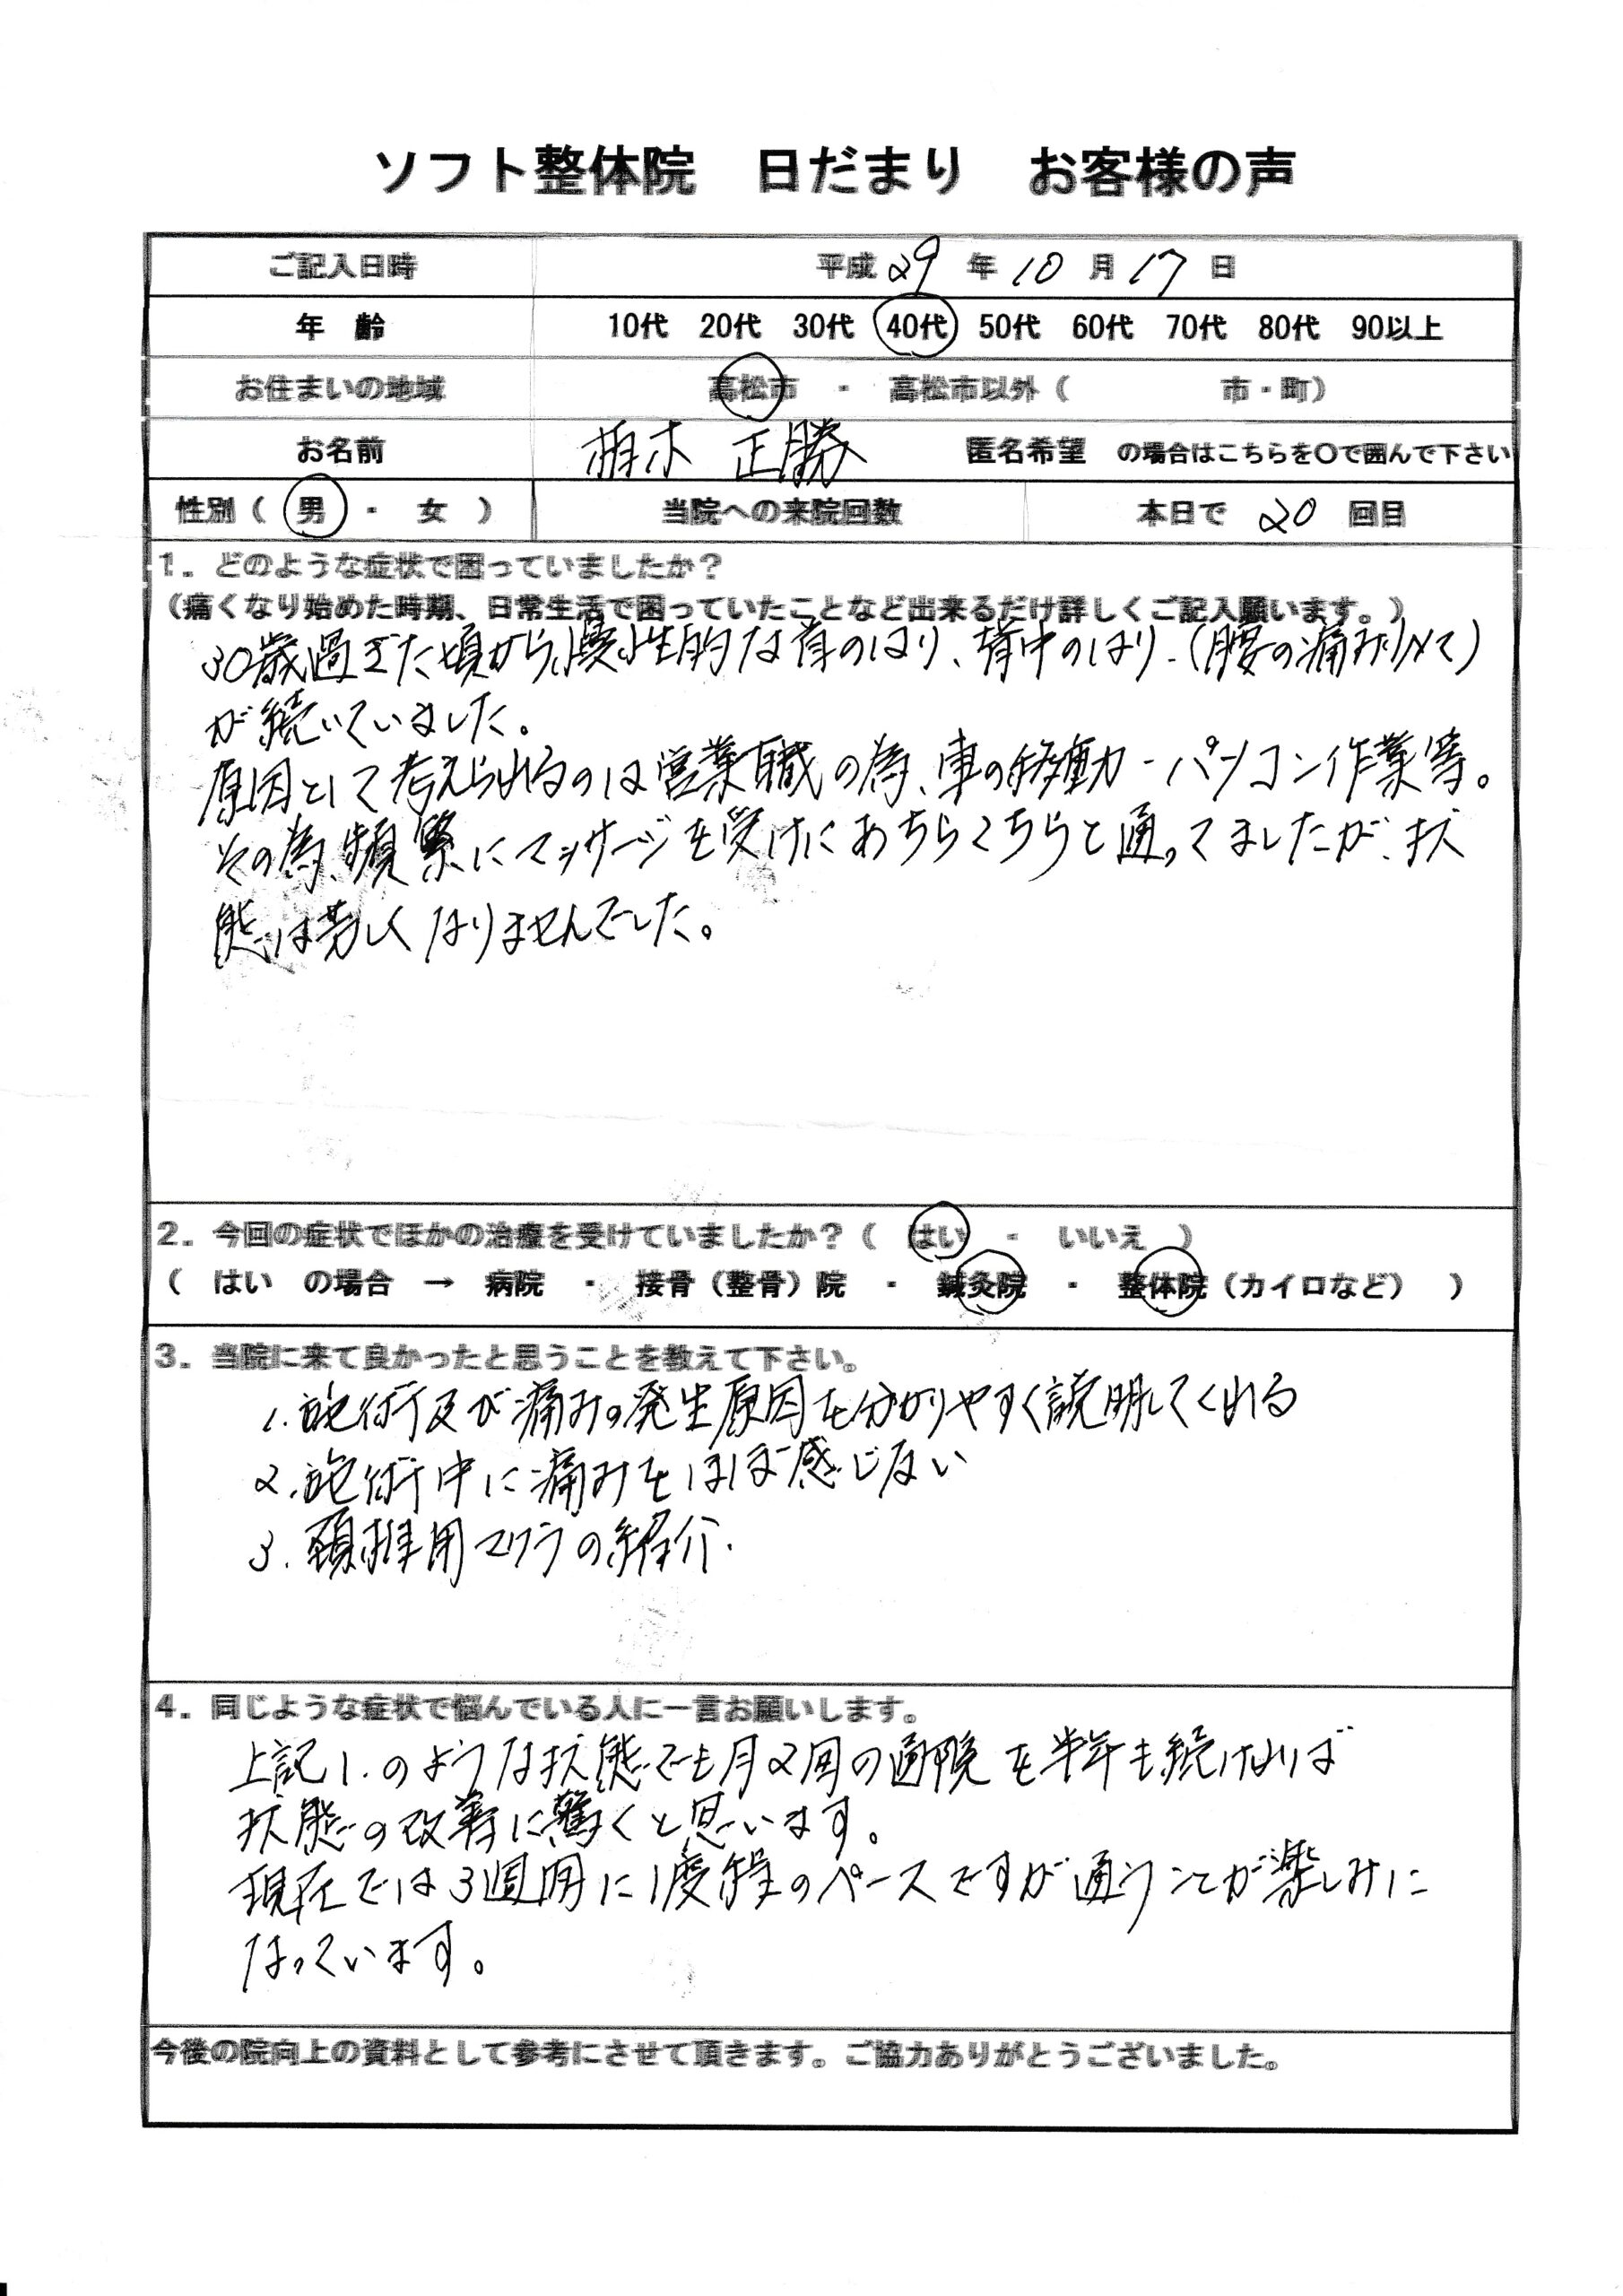 ソフト整体院 日だまり お客様の声
ご記入日時 平成29年10月17日
年 齢 10代 20代 30代 40代 50代 60代 70代 80代 90以上
お住まいの地域 高松市 ・ 高松市以外( 市・町)
お名前 柏木 正勝 匿名希望 の場合はこちらを〇で囲んで下さい
性別( 男 ・ 女 ) 当院への来院回数 本日で 20 回目
1. どのような症状で困っていましたか?
(痛くなり始めた時期、日常生活で困っていたことなど出来るだけ詳しくご記入願います。)
30歳過ぎた頃から、慢性的な首のはり、背中のはり、(腰の痛み)
が続いていました。
原因として考えられるのは営業職の為、車の移動・パソコン作業等。
その為、頻繁にマッサージを受けにあちらこちらと通ってましたが、状
態は芳しくはりませんでした。
2. 今回の症状でほかの治療を受けていましたか?( はい ・ いいえ )
( はい の場合 → 病院 ・ 接骨(整骨)院 ・ 鍼灸院 ・ 整体院(カイロなど) )
3. 当院に来て良かったと思うことを教えて下さい。
1. 施術及び痛みの発生原因を分かりやすく説明してくれる
2. 施術中に痛みをほぼ感じない
3. 頚椎用マクラの紹介.
4. 同じような症状で悩んでいる人に一言お願いします。
上記1.のような状態でも月2回の通院を半年も続ければ
状態の改善に驚くと思います。
現在では3週間に1度程のペースですが通うことが楽しみに
なっています。
今後の院向上の資料として参考にさせて頂きます。ご協力ありがとうございました。